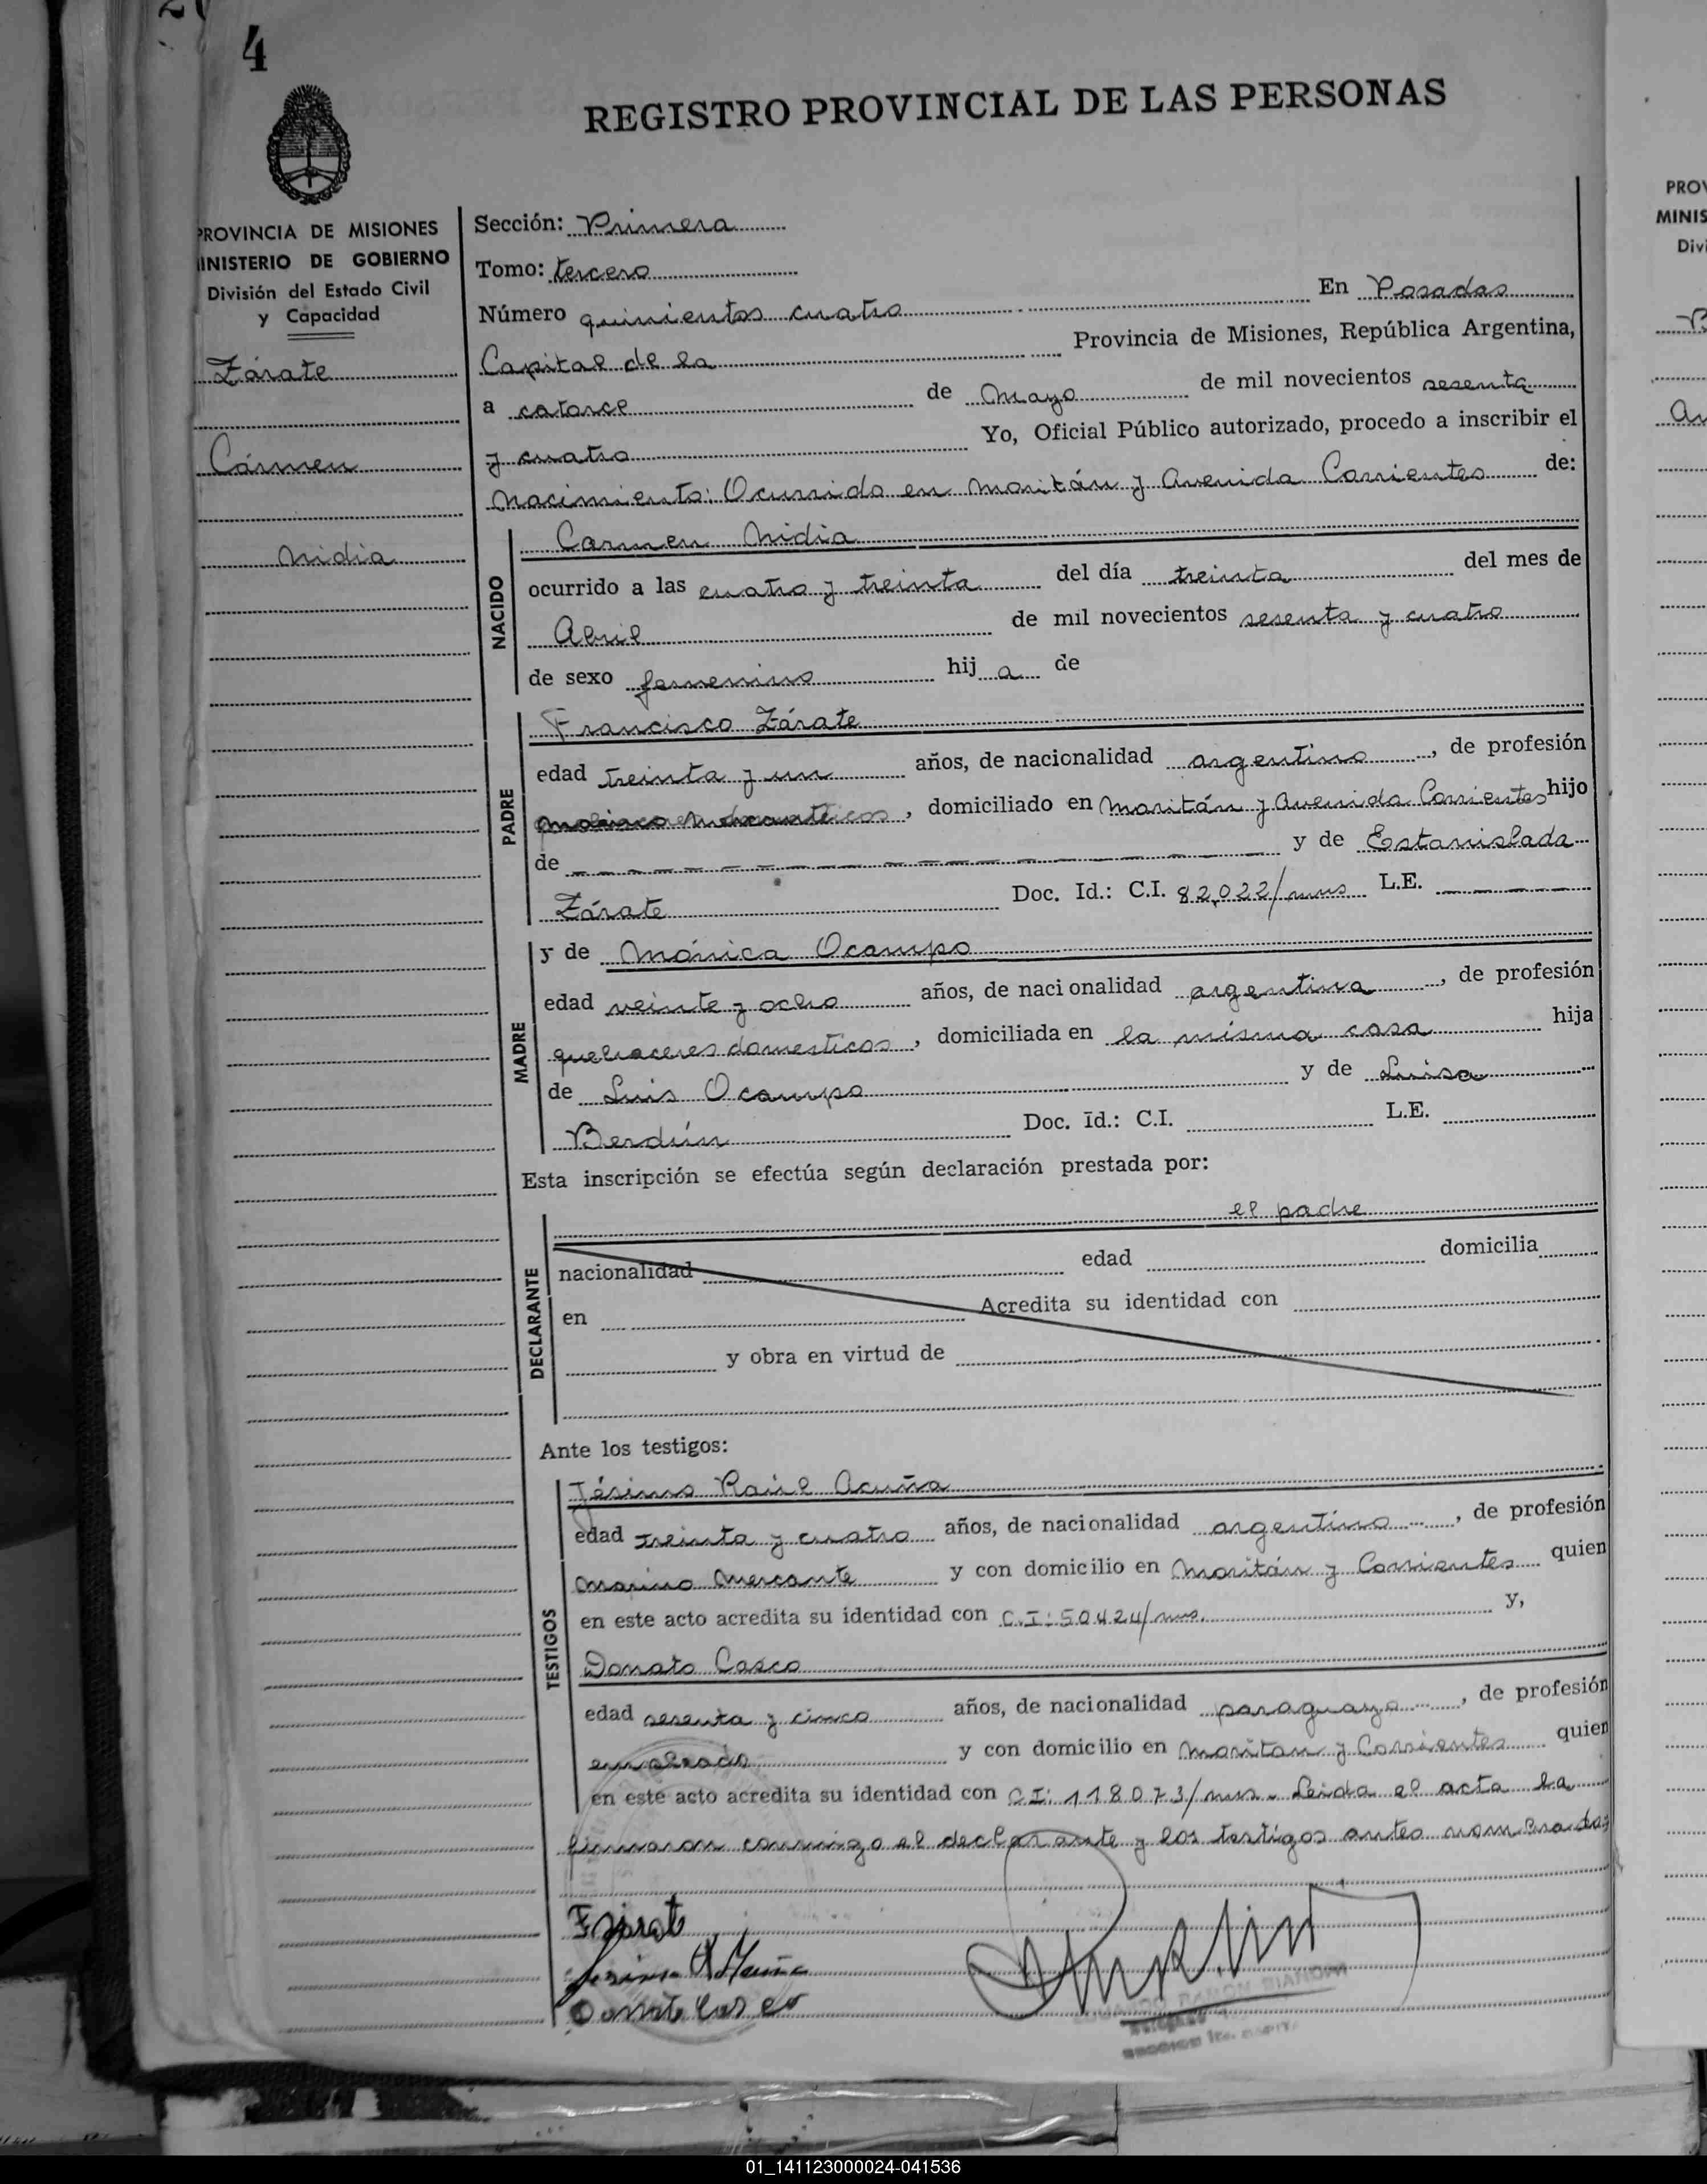 4
REGISTRO PROVINCIAL DE LAS PERSONAS
PROVINCIA DE MISIONES
MINISTERIO DE GOBIERNO
División del Estado Civil
y Capacidad
Zárate
Cármen
Nidia
Sección: Primera
Tomo: tercero
Número quinientos cuatro En Posadas
Capital de la Provincia de Misiones, República Argentina,
a catorce de Mayo de mil novecientos sesenta
y cuatro Yo, Oficial Público autorizado, procedo a inscribir el
Nacimiento: Ocurrido en Maritán y Avenida Corrientes de:
NACIDO
Carmen Nidia
ocurrido a las cuatro y treinta del día treinta del mes de
Abril de mil novecientos sesenta y cuatro
de sexo femenino hij a de
PADRE
Francisco Zárate
edad treinta y un años, de nacionalidad argentino, de profesión
, domiciliado en Maritán y Avenida Corrientes hijo
de — — — y de Estanislada
Zárate Doc. Id.: C.I. 82.022/mns L.E. — — —
MADRE
y de Mónica Ocampo
edad veinte y ocho años, de nacionalidad argentina, de profesión
quehaceres domesticos, domiciliada en la misma casa hija
de Luis Ocampo y de Luisa
Berdún Doc. Id.: C.I. L.E.
Esta inscripción se efectúa según declaración prestada por:
DECLARANTE
el padre
nacionalidad edad domicilia
en Acredita su identidad con
y obra en virtud de
Ante los testigos:
TESTIGOS
Jésimo Raúl Acuña
edad treinta y cuatro años, de nacionalidad argentino, de profesión
Marino Mercante y con domicilio en Maritán y Corrientes quien
en este acto acredita su identidad con C.I: 50424/mns. y,
Donato Casco
edad sesenta y cinco años, de nacionalidad paraguayo, de profesión
empleado y con domicilio en Maritan y Corrientes quien
en este acto acredita su identidad con CI: 118073/mns. Leida el acta la
firmaron conmigo el declarante y los testigos antes nombrados
F Zárate
Donato Casco
PROV
MINIS
Divi
01_141123000024-041536